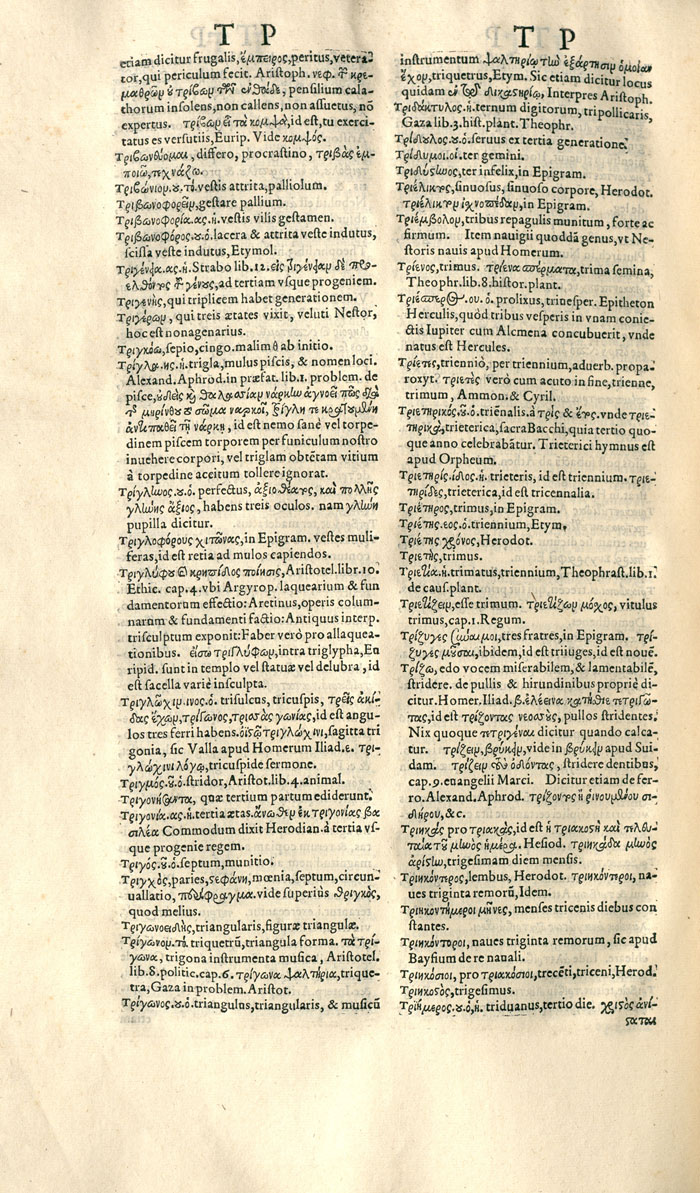 Τ Ρ
Τ Ρ
etiam dicitur frugalis, ἔμπειρος, peritus, vetera-
tor, qui periculum fecit. Aristoph. νεφ.
pensilium cala-
thorum insolens, non callens, non assuetus, nō
expertus. id est, tu exerci-
tatus es versutiis, Eurip. Vide κομψός.
differo, procrastino, τριβὰς ἐμ-
ποιῶ, τεχνάζω.
Τριβώνιον. ȣ. τὸ. vestis attrita, palliolum.
Τριβωνοφορεῖν, gestare pallium.
Τριβωνοφορία. ας. ἡ. vestis vilis gestamen.
Τριβωνοφόρος. ȣ. ὁ. lacera & attrita veste indutus,
scissa veste indutus, Etymol.
ας. ἡ. Strabo lib. 12.
ad tertiam vsque progeniem.
Τριγενὴς, qui triplicem habet generationem.
Τριγέρων, qui treis ætates vixit, veluti Nestor,
hoc est nonagenarius.
sepio, cingo. malim θ ab initio.
Τρίγλα. ης. ἡ. trigla, mulus piscis, & nomen loci.
Alexand. Aphrod. in præfat. lib. 1. problem. de
pisce,
id est nemo sanè vel torpe-
dinem piscem torporem per funiculum nostro
inuehere corpori, vel triglam obtētam vitium
à torpedine aceitum tollere ignorat.
Τρίγλωος. ȣ. ὁ. perfectus,
habens treis oculos. nam
pupilla dicitur.
Τριγλοφόρους χιτῶνας, in Epigram. vestes muli-
feras, id est retia ad mulos capiendos.
κρηπῖδος ποίησις, Aristotel. libr. 10.
Ethic. cap. 4. vbi Argyrop. laquearium & fun
damentorum effectio: Aretinus, operis colum-
narum & fundamenti factio: Antiquus interp.
trisculptum exponit: Faber verò pro allaquea-
tionibus. εἴσω τριγλύφων, intra triglypha, Eu
ripid. sunt in templo vel statuæ vel delubra, id
est sacella variè insculpta.
Τριγλώχιν. ινος. ὁ. trisulcus, tricuspis, τρεῖς ἀκί-
δας ἔχων, τρίγωνος, τρισσὰς γωνίας, id est angu-
los tres ferri habens. ὀϊστῷ τριγλώχινι, sagitta tri
gonia, sic Valla apud Homerum Iliad. ε. τρι-
γλώχινι λόγῳ, tricuspide sermone.
Τριγμός. ȣ̂. ὁ. stridor, Aristot. lib. 4. animal.
quæ tertium partum ediderunt.
Τριγονία. ας. ἡ. tertia ætas. ἄνωθεν ἐκ τριγονίας βα
σιλέα Commodum dixit Herodian. à tertia vs-
que progenie regem.
Τριγός. ȣ̂. ὁ. septum, munitio.
Τριγχὸς, paries, στεφάνη, mœnia, septum, circun-
uallatio, vide superiùs θριγκὸς,
quod melius.
Τριγωνοειδὴς, triangularis, figuræ triangulæ.
Τρίγωνον. τὸ. triquetrū, triangula forma. τὰ τρί-
γωνα, trigona instrumenta musica, Aristotel.
lib. 8. politic. cap. 6. τρίγωνα ψαλτήρια, trique-
tra, Gaza in problem. Aristot.
Τρίγωνος. ȣ. ὁ. triangulus, triangularis, & musicū
instrumentum
ἔχον, triquetrus, Etym. Sic etiam dicitur locus
quidam Interpres Aristoph.
Τριδάκτυλος. ἡ. ternum digitorum, tripollicaris,
Gaza lib. 3. hist. plant. Theophr.
Τρίδουλος. ȣ. ὁ. seruus ex tertia generatione.
Τρίδυμοι. οἱ. ter gemini.
ter infelix, in Epigram.
sinuosus, sinuoso corpore, Herodot.
in Epigram.
Τριέμβολον, tribus repagulis munitum, forte ac
firmum. Item nauigii quoddā genus, vt Ne-
storis nauis apud Homerum.
Τρίενος, trimus. τρίενα σπέρματα, trima semina,
Theophr. lib. 8. histor. plant.
Τριέσπερος. ου. ὁ. prolixus, trinesper. Epitheton
Herculis, quòd tribus vesperis in vnam conie-
ctis Iupiter cum Alcmena concubuerit, vnde
natus est Hercules.
Τρίετες, triennió, per triennium, aduerb. propa-
roxyt. τριετὲς verò cum acuto in fine, trienne,
trimum, Ammon. & Cyril.
Τριετηρικός. ȣ̂. ὁ. triēnalis. à τρὶς & ἔτος. vnde τριε-
τηρικὰ, trieterica, sacra Bacchi, quia tertio quo-
que anno celebrabātur. Trieterici hymnus est
apud Orpheum.
Τριετηρίς. ίδος. ἡ. trieteris, id est triennium. τριε-
τηρίδες, trieterica, id est tricennalia.
Τριέτηρος, trimus, in Epigram.
Τριέτης. εος. ὁ. triennium, Etym.
Τριέτης χρόνος, Herodot.
Τριετὴς, trimus.
Τριετία. ἡ. trimatus, triennium, Theophrast. lib. 1.
de caus. plant.
Τριετίζειν, esse trimum. τριετίζων μόσχος, vitulus
trimus, cap. 1. Regum.
Τρίζυγες tres fratres, in Epigram. τρί-
ζυγες μοῦσαι, ibidem, id est triiuges, id est nouē.
Τρίζω, edo vocem miserabilem, & lamentabilē,
stridere. de pullis & hirundinibus propriè di-
citur. Homer. Iliad. β. ἐλεεινὰ κατήσθιε τετριγῶ-
τας, id est τρίζοντας νεοσσοὺς, pullos stridentes.
Nix quoque τετριγένα dicitur quando calca-
tur. τρίζειν, βρύκειν, vide in βρύκειν apud Sui-
dam. τρίζειν τοὺς ὀδόντας, stridere dentibus,
cap. 9. euangelii Marci. Dicitur etiam de fer-
ro. Alexand. Aphrod. τρίζοντος ἢ ῥινουμένου σι-
δήρου, &c.
Τριηκὰς pro τριακὰς, id est ἡ τριακοστὴ καὶ τελευ-
ταία τοῦ μηνὸς ἡμέρα. Hesiod. τριηκάδα μηνὸς
ἀρίστην, trigesimam diem mensis.
Τριηκόντερος, lembus, Herodot. τριηκόντεροι, na-
ues triginta remorū, Idem.
Τριηκοντήμεροι μῆνες, menses tricenis diebus con
stantes.
Τριηκόντοροι, naues triginta remorum, sic apud
Baysium de re nauali.
Τριηκόσιοι, pro τριακόσιοι, trecēti, triceni, Herod.
Τριηκοστὸς, trigesimus.
Τριήμερος. ȣ. ὁ, ἡ. triduanus, tertio die. χριστὸς ἀνί-
σταται